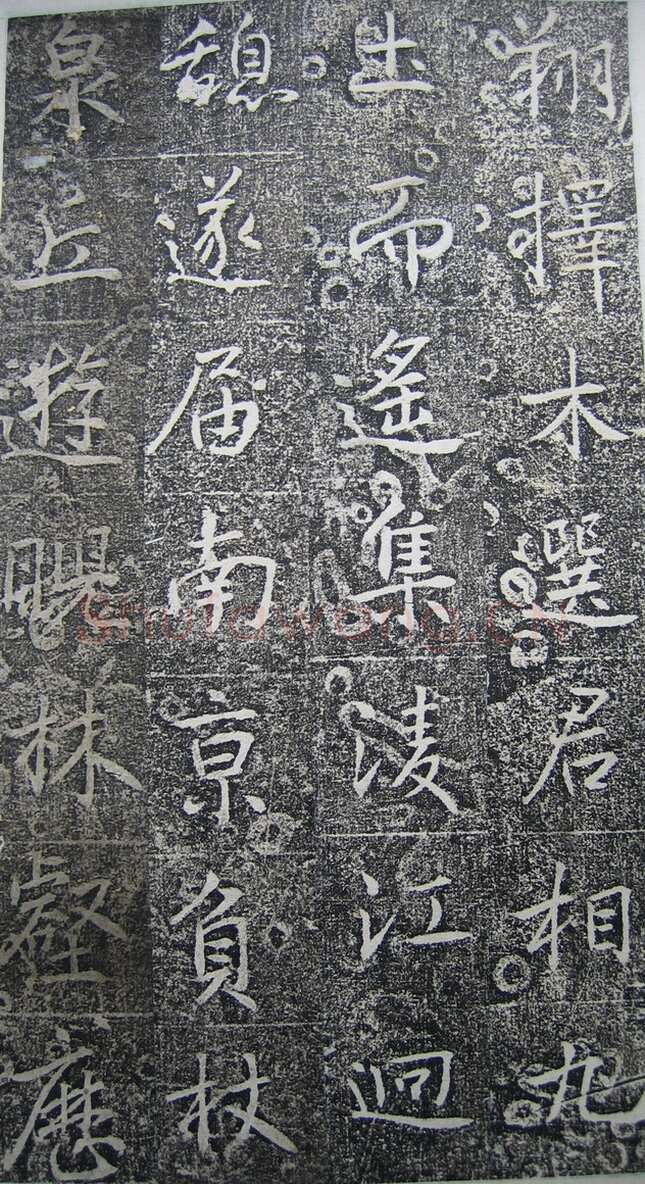 翔擇木選君相九
土而遙集淩江迥
憩遂届南京負杖
泉丘遊矚林壑歷
Shufawang.CN